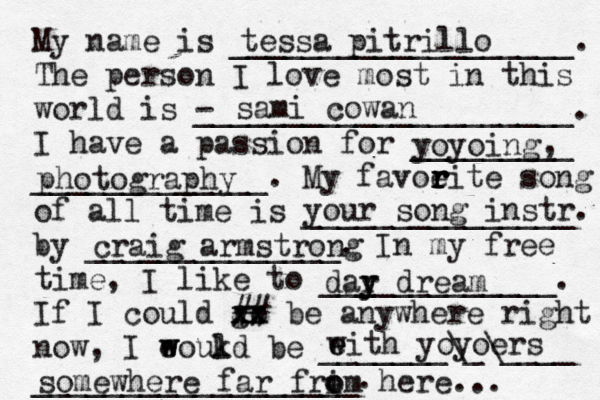 My name is tessa pitrillo.
The person I love most in this
world is - sami cowan.
I have a passion for yoyoing,
photography. My favorite song
of all time is your song instr.
by craig armstrong. In my free
time, I like to day dream.
If I could ## be anywhere right
now, I would be with yo\yo\ers
somewhere far from here...